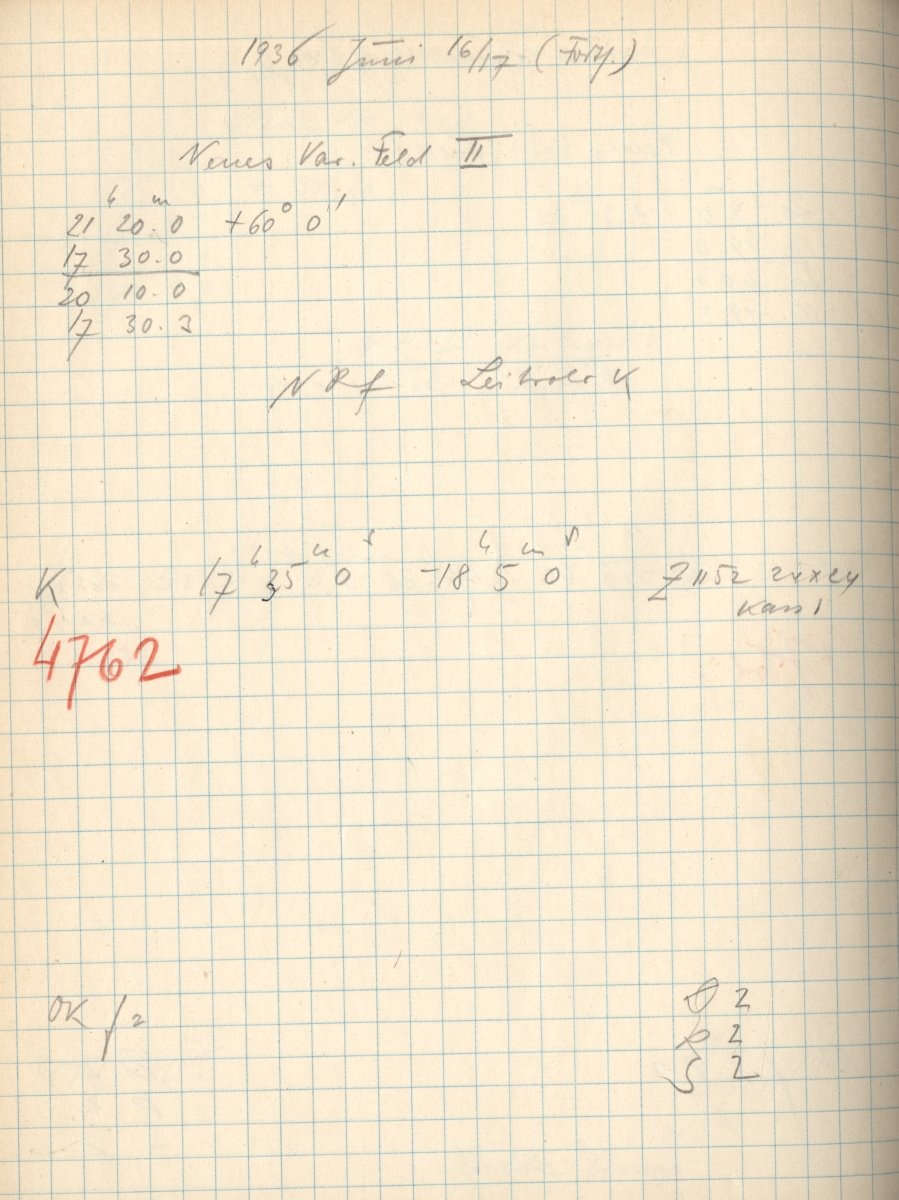 1936 Juni 16/17 (Forts.)
Neues Var. Feld II
21ʰ 20ᵐ.0 +60° 0'
17 30.0
20 10.0
17 30.3
NRf Leitrohr K
K 17ʰ 35ᵐ 0ˢ -18ʰ 5ᵐ 0ˢ Z 1152 24x24
Kass 1
4762
OK f 2
2
2
S 2